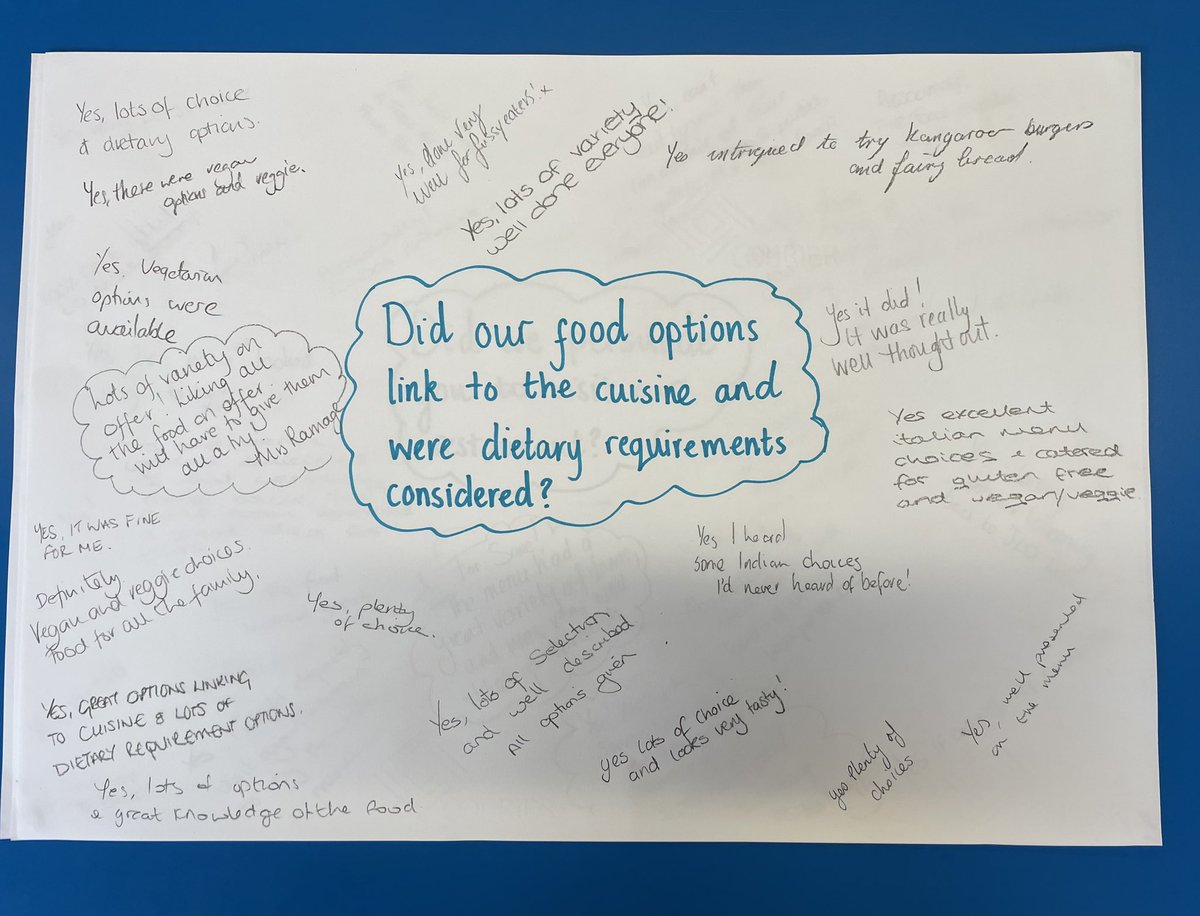 Yes, lots of choice
& dietary options.
Yes, there were vegan
options and veggie.
Yes, done very
well for fussy eaters! x
Yes, lots of variety
well done everyone!
Yes intrigued to try kangaroo burgers
and fairy bread.
Yes. Vegetarian
options were
available
Lots of variety on
offer, liking all
the food on offer
will have to give them
all a try
Mrs Ramage
Did our food options
link to the cuisine and
were dietary requirements
considered?
Yes it did!
It was really
well thought out.
Yes excellent
italian menu
choices & catered
for gluten free
and vegan/veggie
YES, IT WAS FINE
FOR ME.
Definitely
Vegan and veggie choices.
Food for all the family.
Yes, plenty
of choice.
Yes I heard
some Indian choices
I'd never heard of before!
YES, GREAT OPTIONS LINKING
TO CUISINE & LOTS OF
DIETARY REQUIREMENT OPTIONS.
Yes, lots of Selection
and well described
All options given
yes lots of choice
and looks very tasty!
yes Plenty of
choices
Yes, well presented
on the menu
Yes, lots of options
& great knowledge of the food